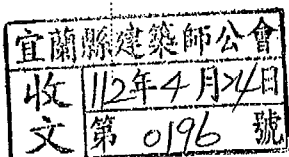 宜蘭縣建築師公會
收文
112年4月24日
第 0196 號